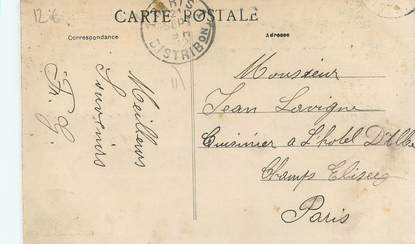 126
CARTE POSTALE
Correspondance
Adresse
PARIS
DISTRIBON
Meilleurs
Souvenirs
F. G.
Monsieur
Jean Lavigne
Cuisinier a L'hotel D'Albe
Champs Elisees
Paris